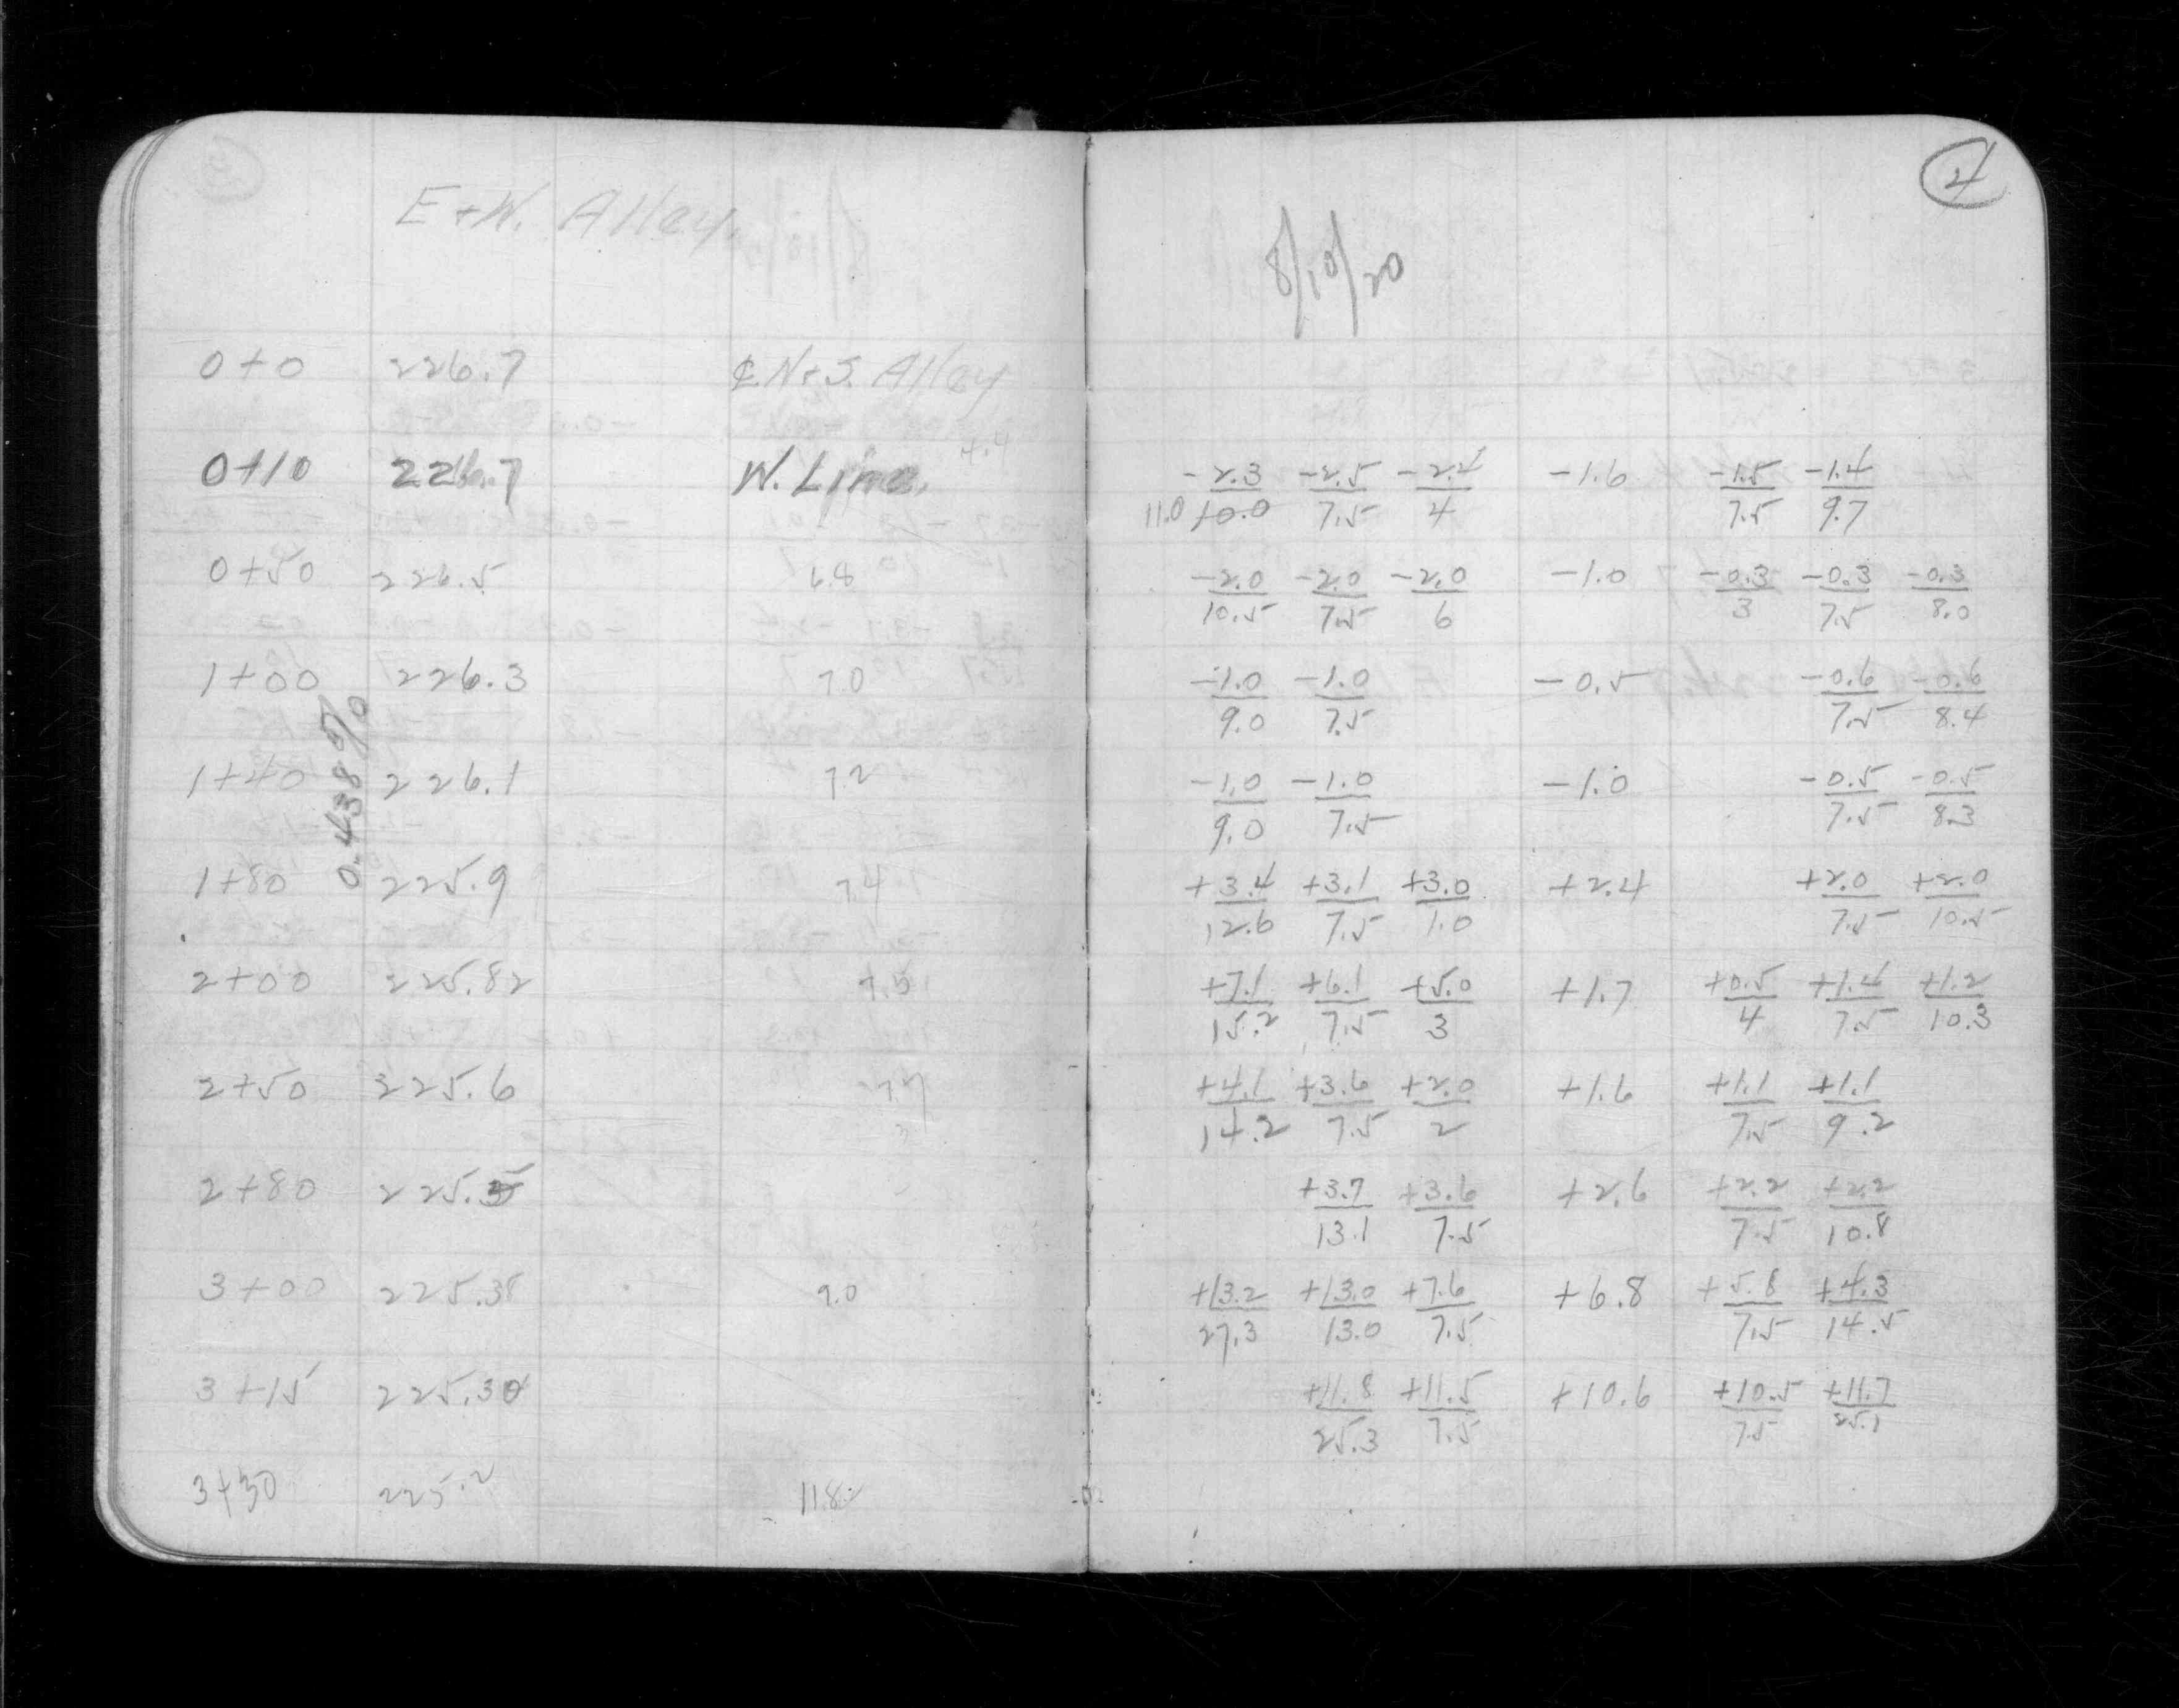 4
E+W. Alley.
8/10/20
0+0 226.7 ℄ N+S. Alley
4.4
0+10 226.7 W. Line. -2.3 -2.5 -2.4 -1.6 -1.5 -1.4
11.0 10.0 7.5 4 7.5 9.7
0+50 226.5 6.8 -2.0 -2.0 -2.0 -1.0 -0.3 -0.3 -0.3
10.5 7.5 6 3 7.5 8.0
1+00 226.3 7.0 -1.0 -1.0 -0.5 -0.6 -0.6
9.0 7.5 7.5 8.4
0.438%
1+40 226.1 7.2 -1.0 -1.0 -1.0 -0.5 -0.5
9.0 7.5 7.5 8.3
1+80 225.9 7.4 +3.4 +3.1 +3.0 +2.4 +2.0 +2.0
12.6 7.5 1.0 7.5 10.5
2+00 225.82 7.5 +7.1 +6.1 +5.0 +1.7 +0.5 +1.4 +1.2
15.2 7.5 3 4 7.5 10.3
2+50 225.6 7.7 +4.1 +3.6 +2.0 +1.6 +1.1 +1.1
14.2 7.5 2 7.5 9.2
2+80 225.5 +3.7 +3.6 +2.6 +2.2 +2.2
13.1 7.5 7.5 10.8
3+00 225.38 9.0 +13.2 +13.0 +7.6 +6.8 +5.8 +4.3
27.3 13.0 7.5 7.5 14.5
3+15 225.30 +11.8 +11.5 +10.6 +10.5 +11.7
25.3 7.5 7.5 25.1
3+30 225.2 11.8